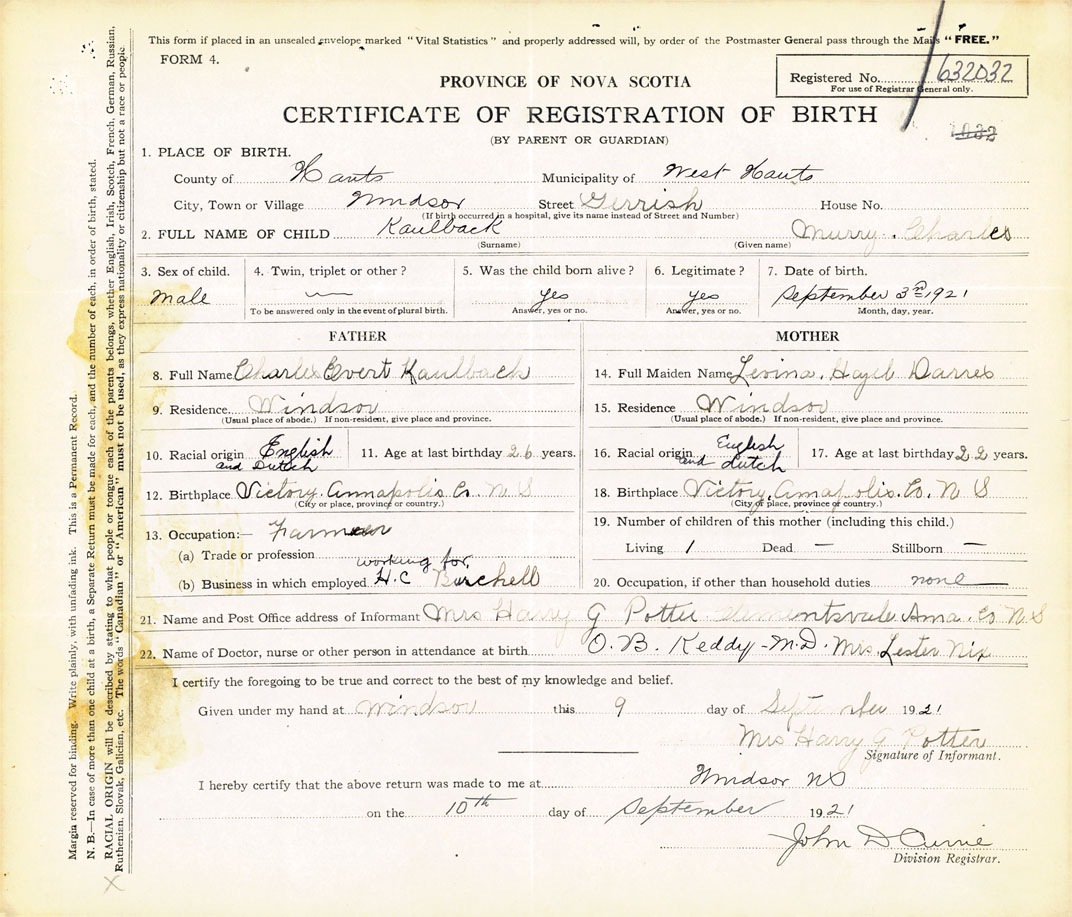 This form if placed in an unsealed envelope marked "Vital Statistics" and properly addressed will, by order of the Postmaster General pass through the Mails "FREE."
FORM 4.
Registered No. 632032
For use of Registrar General only.
PROVINCE OF NOVA SCOTIA
CERTIFICATE OF REGISTRATION OF BIRTH
(BY PARENT OR GUARDIAN)
1. PLACE OF BIRTH.
County of Hants Municipality of West Hants
City, Town or Village Windsor Street Gerrish House No.
(If birth occurred in a hospital, give its name instead of Street and Number)
2. FULL NAME OF CHILD Kaulback Murry Charles
(Surname) (Given name)
3. Sex of child. 4. Twin, triplet or other? 5. Was the child born alive? 6. Legitimate? 7. Date of birth.
Male yes yes September 3rd 1921
To be answered only in the event of plural birth. Answer, yes or no. Answer, yes or no. Month, day, year.
FATHER
8. Full Name Charles Evert Kaulback
9. Residence Windsor
(Usual place of abode.) If non-resident, give place and province.
10. Racial origin English and Dutch 11. Age at last birthday 26 years.
12. Birthplace Victory Annapolis Co N S
(City or place, province or country.)
13. Occupation:— Farmer
(a) Trade or profession
working for
(b) Business in which employed H.C Burchell
MOTHER
14. Full Maiden Name Levina Darres
15. Residence Windsor
(Usual place of abode.) If non-resident, give place and province.
16. Racial origin English and Dutch 17. Age at last birthday 22 years.
18. Birthplace Victory, Annapolis. Co. N S
(City or place, province or country.)
19. Number of children of this mother (including this child.)
Living 1 Dead — Stillborn —
20. Occupation, if other than household duties none
21. Name and Post Office address of Informant Mrs Harry G Potter Clementsvale Anna. Co N S
22. Name of Doctor, nurse or other person in attendance at birth O. B. Keddy - M.D. Mrs. Lester Nix
I certify the foregoing to be true and correct to the best of my knowledge and belief.
Given under my hand at Windsor this 9 day of September 1921
Mrs Harry G Potter
Signature of Informant.
I hereby certify that the above return was made to me at Windsor NS
on the 10th day of September 1921
John D Currie
Division Registrar.
Margin reserved for binding. Write plainly, with unfading ink. This is a Permanent Record.
N. B.—In case of more than one child at a birth, a Separate Return must be made for each, and the number of each, in order of birth, stated.
RACIAL ORIGIN will be described by stating to what people or tongue each of the parents belongs, whether English, Irish, Scotch, French, German, Russian,
Ruthenian, Slovak, Galician, etc. The words "Canadian" or "American" must not be used, as they express nationality or citizenship but not a race or people